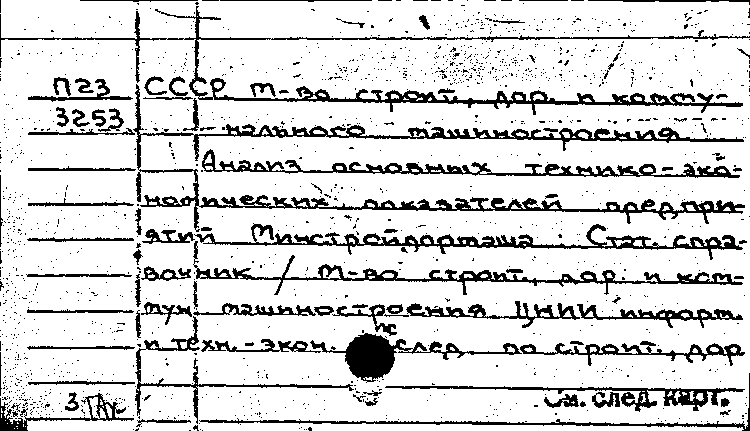 П23 СССР М-во строит., дор. и комму-
3253 нального машиностроения
Анализ основных технико-эко-
номических показателей предпри-
ятий Минстройдормаша : Стат. спра-
вочник / М-во строит., дор. и ком-
мун. машиностроения ЦНИИ информ.
и техн.-экон. исслед. по строит., дор
3 См. след. карт.